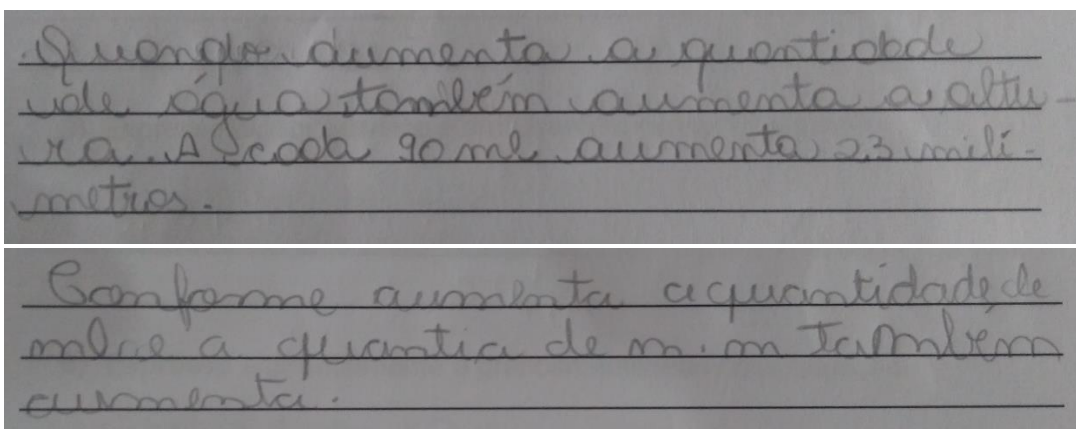 Quando aumenta a quantidade
de água também aumenta a altu-
ra. A cada 90 ml aumenta 23 milí-
metros.
Conforme aumenta a quantidade de
ml e a quantia de m.m também
aumenta.